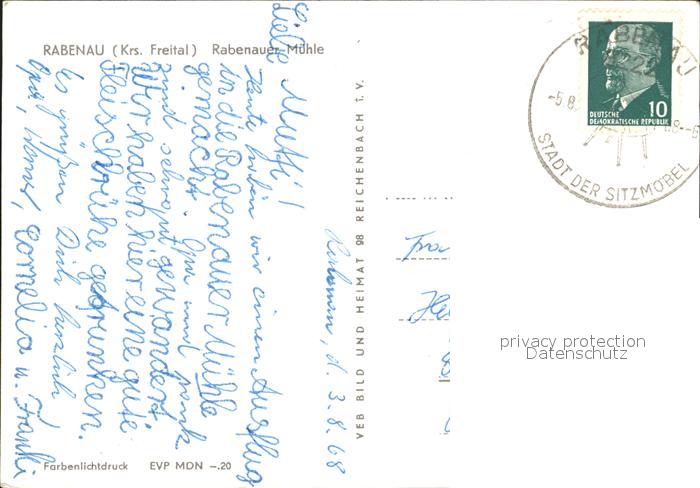 RABENAU (Krs. Freital) Rabenauer Mühle
Liebe Mutti!
Heute haben wir einen Ausflug
in die Rabenauer Mühle
gemacht. Opa und Frank
sind schon gewandert.
Wir haben hier eine gute
Fleischbrühe getrunken.
Es grüßen Dich herzlich
Opa, Cornelia u. Frank
d. 3.8.68
Farbenlichtdruck EVP MDN -.20
VEB BILD UND HEIMAT 98 REICHENBACH i. V.
Frau
RABENAU
-5.8.
STADT DER SITZMÖBEL
DEUTSCHE
DEMOKRATISCHE REPUBLIK
10
privacy protection
Datenschutz